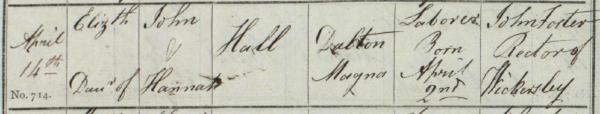 April
14th
No. 714.
Elizth
Daur of
John
&
Hannah
Hall
Dalton
Magna
Laborer
Born
April
2nd
John Foster
Rector of
Wickersley